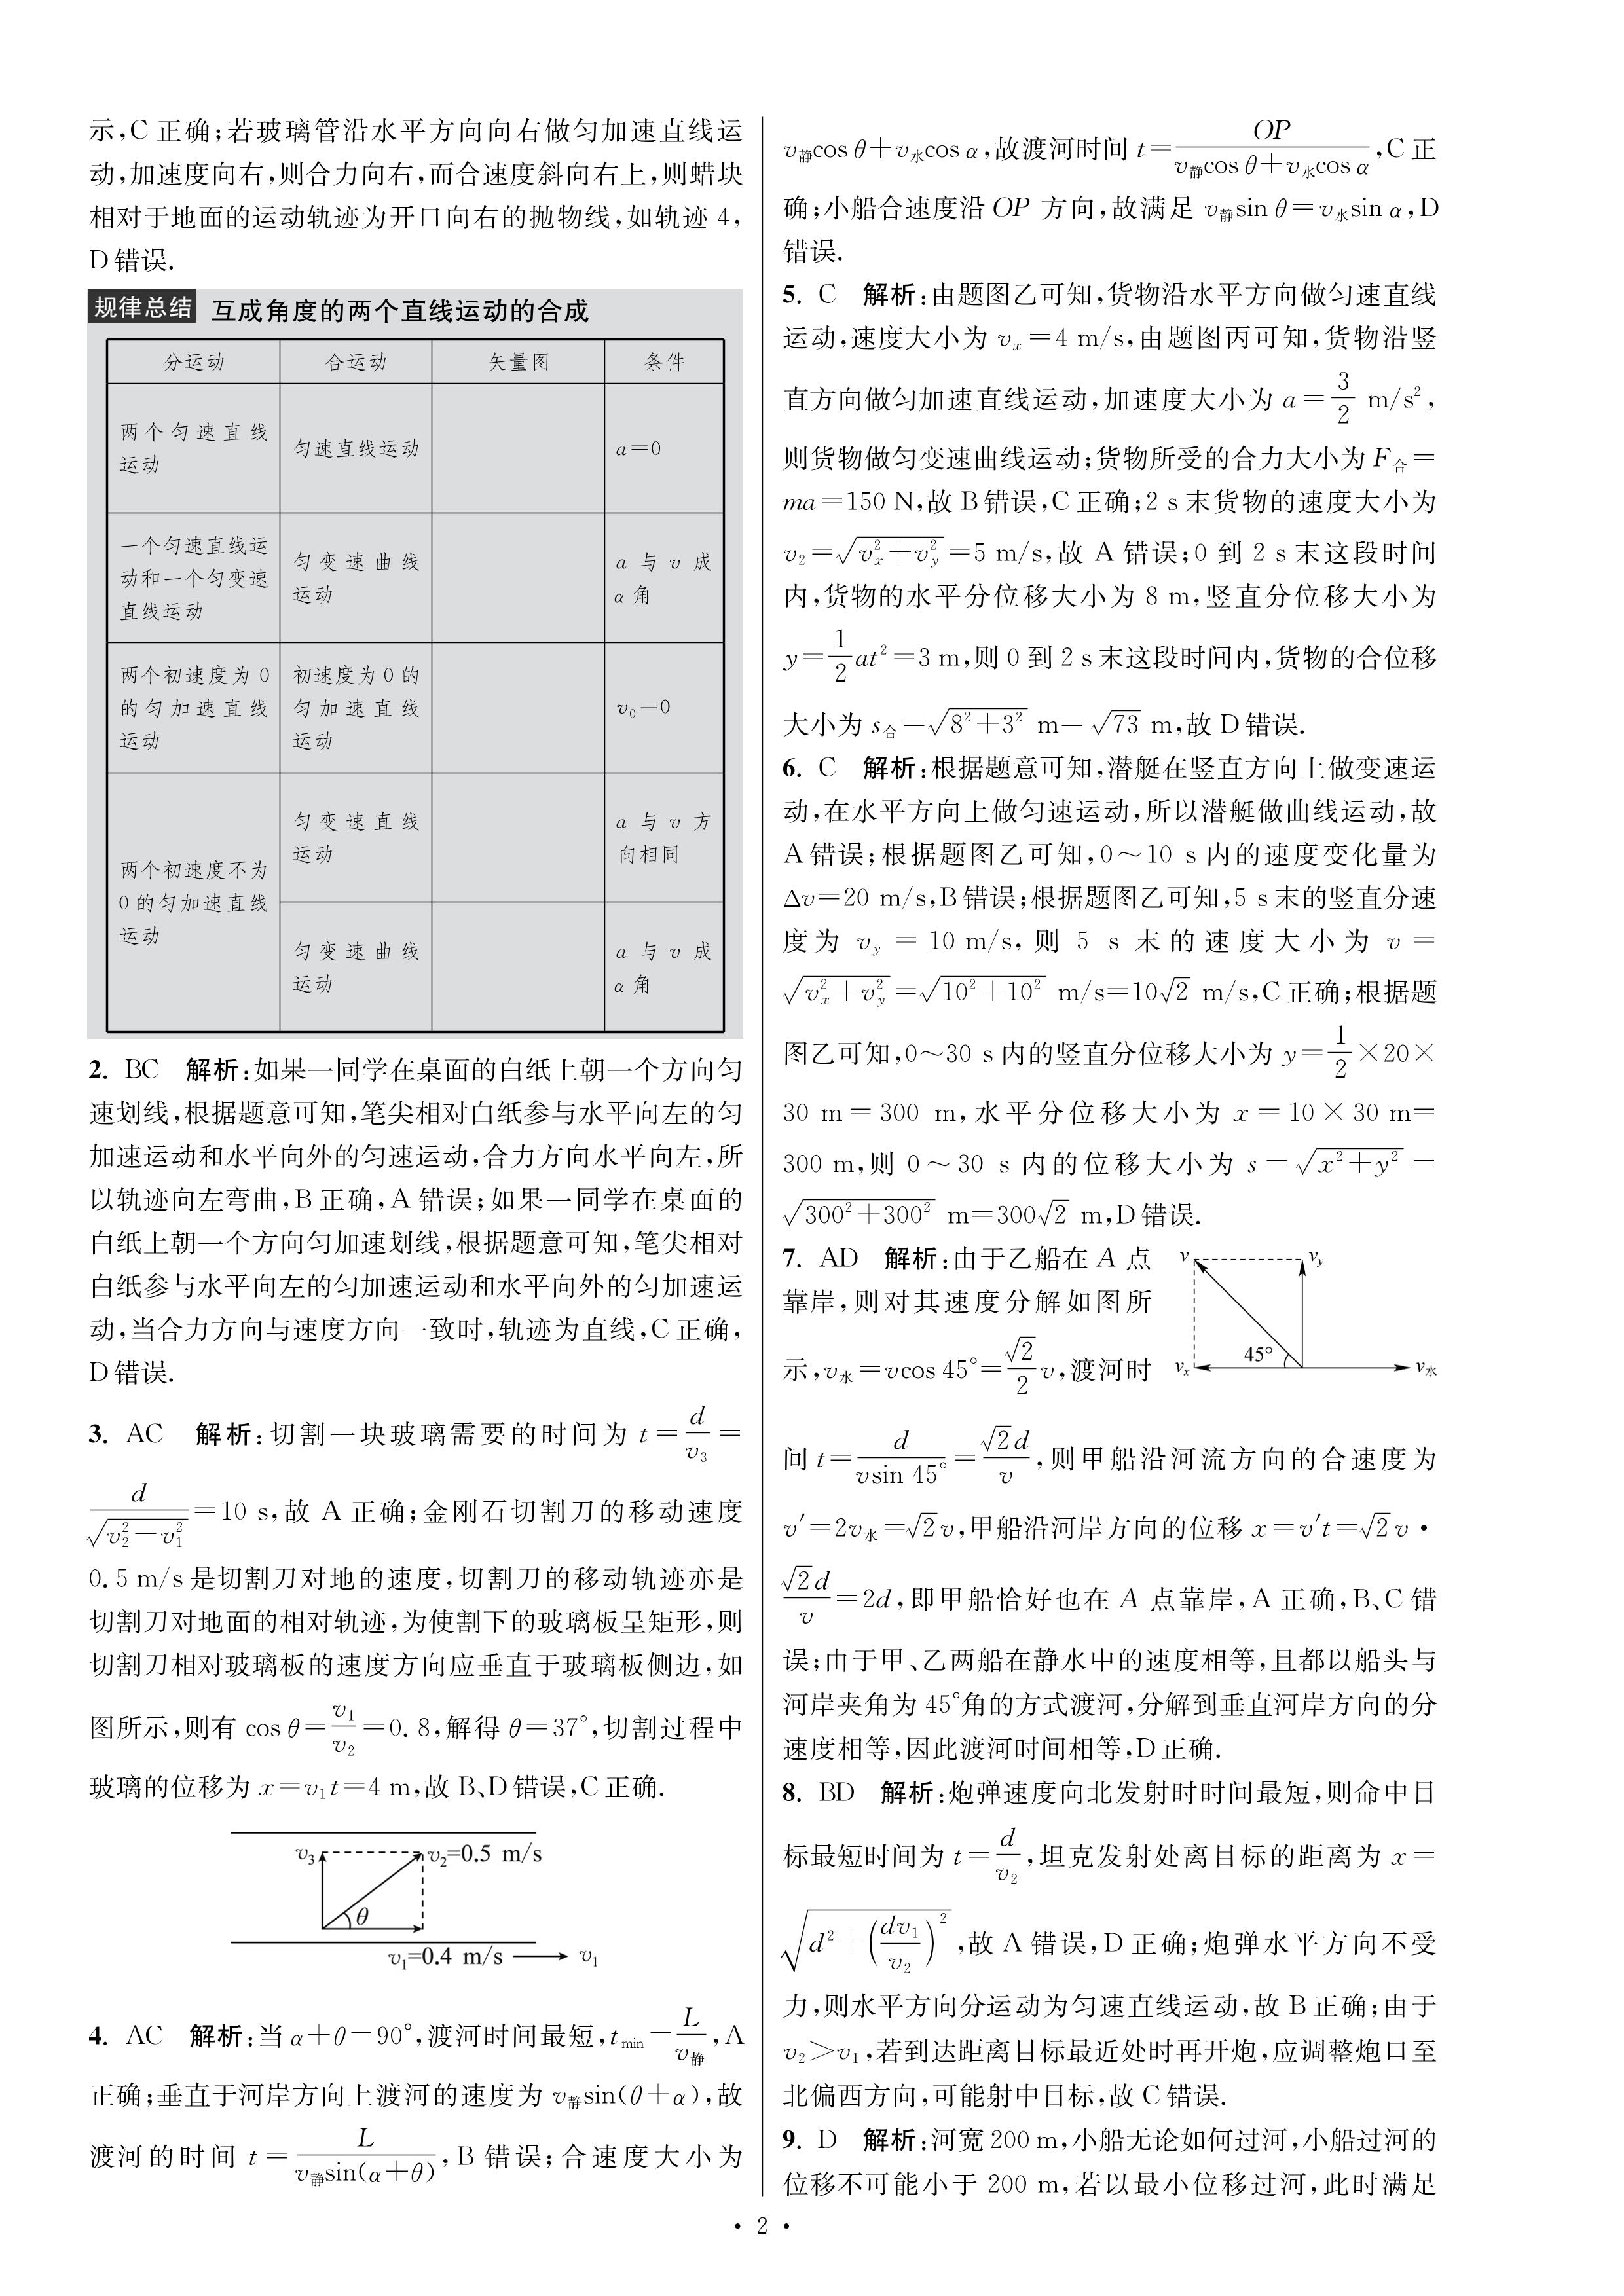 示,C 正确;若玻璃管沿水平方向向右做匀加速直线运
动,加速度向右,则合力向右,而合速度斜向右上,则蜡块
相对于地面的运动轨迹为开口向右的抛物线,如轨迹 4,
D 错误.
规律总结 互成角度的两个直线运动的合成
分运动 合运动 矢量图 条件
两个匀速直线
运动
匀速直线运动
a=0
一个匀速直线运
动和一个匀变速
直线运动
匀变速曲线
运动
a 与 v 成
α 角
两个初速度为 0
的匀加速直线
运动
初速度为 0 的
匀加速直线
运动
v₀=0
两个初速度不为
0 的匀加速直线
运动
匀变速直线
运动
a 与 v 方
向相同
匀变速曲线
运动
a 与 v 成
α 角
2. BC 解析:如果一同学在桌面的白纸上朝一个方向匀
速划线,根据题意可知,笔尖相对白纸参与水平向左的匀
加速运动和水平向外的匀速运动,合力方向水平向左,所
以轨迹向左弯曲,B 正确,A 错误;如果一同学在桌面的
白纸上朝一个方向匀加速划线,根据题意可知,笔尖相对
白纸参与水平向左的匀加速运动和水平向外的匀加速运
动,当合力方向与速度方向一致时,轨迹为直线,C 正确,
D 错误.
3. AC 解析:切割一块玻璃需要的时间为 t=d/v₃=
d/√(v₂²−v₁²)=10 s,故 A 正确;金刚石切割刀的移动速度
0.5 m/s 是切割刀对地的速度,切割刀的移动轨迹亦是
切割刀对地面的相对轨迹,为使割下的玻璃板呈矩形,则
切割刀相对玻璃板的速度方向应垂直于玻璃板侧边,如
图所示,则有 cos θ=v₁/v₂=0.8,解得 θ=37°,切割过程中
玻璃的位移为 x=v₁t=4 m,故 B、D 错误,C 正确.
v₃ v₂=0.5 m/s
θ
v₁=0.4 m/s v₁
4. AC 解析:当 α+θ=90°,渡河时间最短,t_min=L/v静,A
正确;垂直于河岸方向上渡河的速度为 v静sin(θ+α),故
渡河的时间 t=L/(v静sin(α+θ)),B 错误;合速度大小为
v静cos θ+v水cos α,故渡河时间 t=OP/(v静cos θ+v水cos α),C 正
确;小船合速度沿 OP 方向,故满足 v静sin θ=v水sin α,D
错误.
5. C 解析:由题图乙可知,货物沿水平方向做匀速直线
运动,速度大小为 vₓ=4 m/s,由题图丙可知,货物沿竖
直方向做匀加速直线运动,加速度大小为 a=3/2 m/s²,
则货物做匀变速曲线运动;货物所受的合力大小为 F合=
ma=150 N,故 B 错误,C 正确;2 s 末货物的速度大小为
v₂=√(vₓ²+v_y²)=5 m/s,故 A 错误;0 到 2 s 末这段时间
内,货物的水平分位移大小为 8 m,竖直分位移大小为
y=1/2 at²=3 m,则 0 到 2 s 末这段时间内,货物的合位移
大小为 s合=√(8²+3²) m=√73 m,故 D 错误.
6. C 解析:根据题意可知,潜艇在竖直方向上做变速运
动,在水平方向上做匀速运动,所以潜艇做曲线运动,故
A 错误;根据题图乙可知,0~10 s 内的速度变化量为
Δv=20 m/s,B 错误;根据题图乙可知,5 s 末的竖直分速
度为 v_y = 10 m/s,则 5 s 末的速度大小为 v =
√(vₓ²+v_y²)=√(10²+10²) m/s=10√2 m/s,C 正确;根据题
图乙可知,0~30 s 内的竖直分位移大小为 y=1/2×20×
30 m=300 m,水平分位移大小为 x=10×30 m=
300 m,则 0~30 s 内的位移大小为 s=√(x²+y²)=
√(300²+300²) m=300√2 m,D 错误.
7. AD 解析:由于乙船在 A 点
靠岸,则对其速度分解如图所
示,v水=vcos 45°=√2/2 v,渡河时
v v_y
45°
vₓ v水
间 t=d/(vsin 45°)=√2d/v,则甲船沿河流方向的合速度为
v′=2v水=√2v,甲船沿河岸方向的位移 x=v′t=√2v·
√2d/v=2d,即甲船恰好也在 A 点靠岸,A 正确,B、C 错
误;由于甲、乙两船在静水中的速度相等,且都以船头与
河岸夹角为 45°角的方式渡河,分解到垂直河岸方向的分
速度相等,因此渡河时间相等,D 正确.
8. BD 解析:炮弹速度向北发射时时间最短,则命中目
标最短时间为 t=d/v₂,坦克发射处离目标的距离为 x=
√(d²+(dv₁/v₂)²),故 A 错误,D 正确;炮弹水平方向不受
力,则水平方向分运动为匀速直线运动,故 B 正确;由于
v₂>v₁,若到达距离目标最近处时再开炮,应调整炮口至
北偏西方向,可能射中目标,故 C 错误.
9. D 解析:河宽 200 m,小船无论如何过河,小船过河的
位移不可能小于 200 m,若以最小位移过河,此时满足
· 2 ·